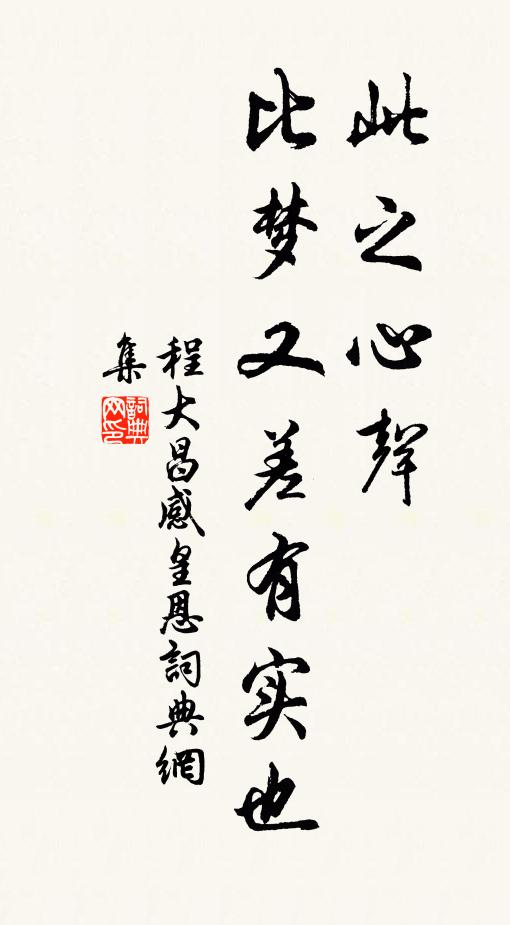 此之心聲
比梦又差有实也
程大昌感皇恩詞典網
集
詞典
网印